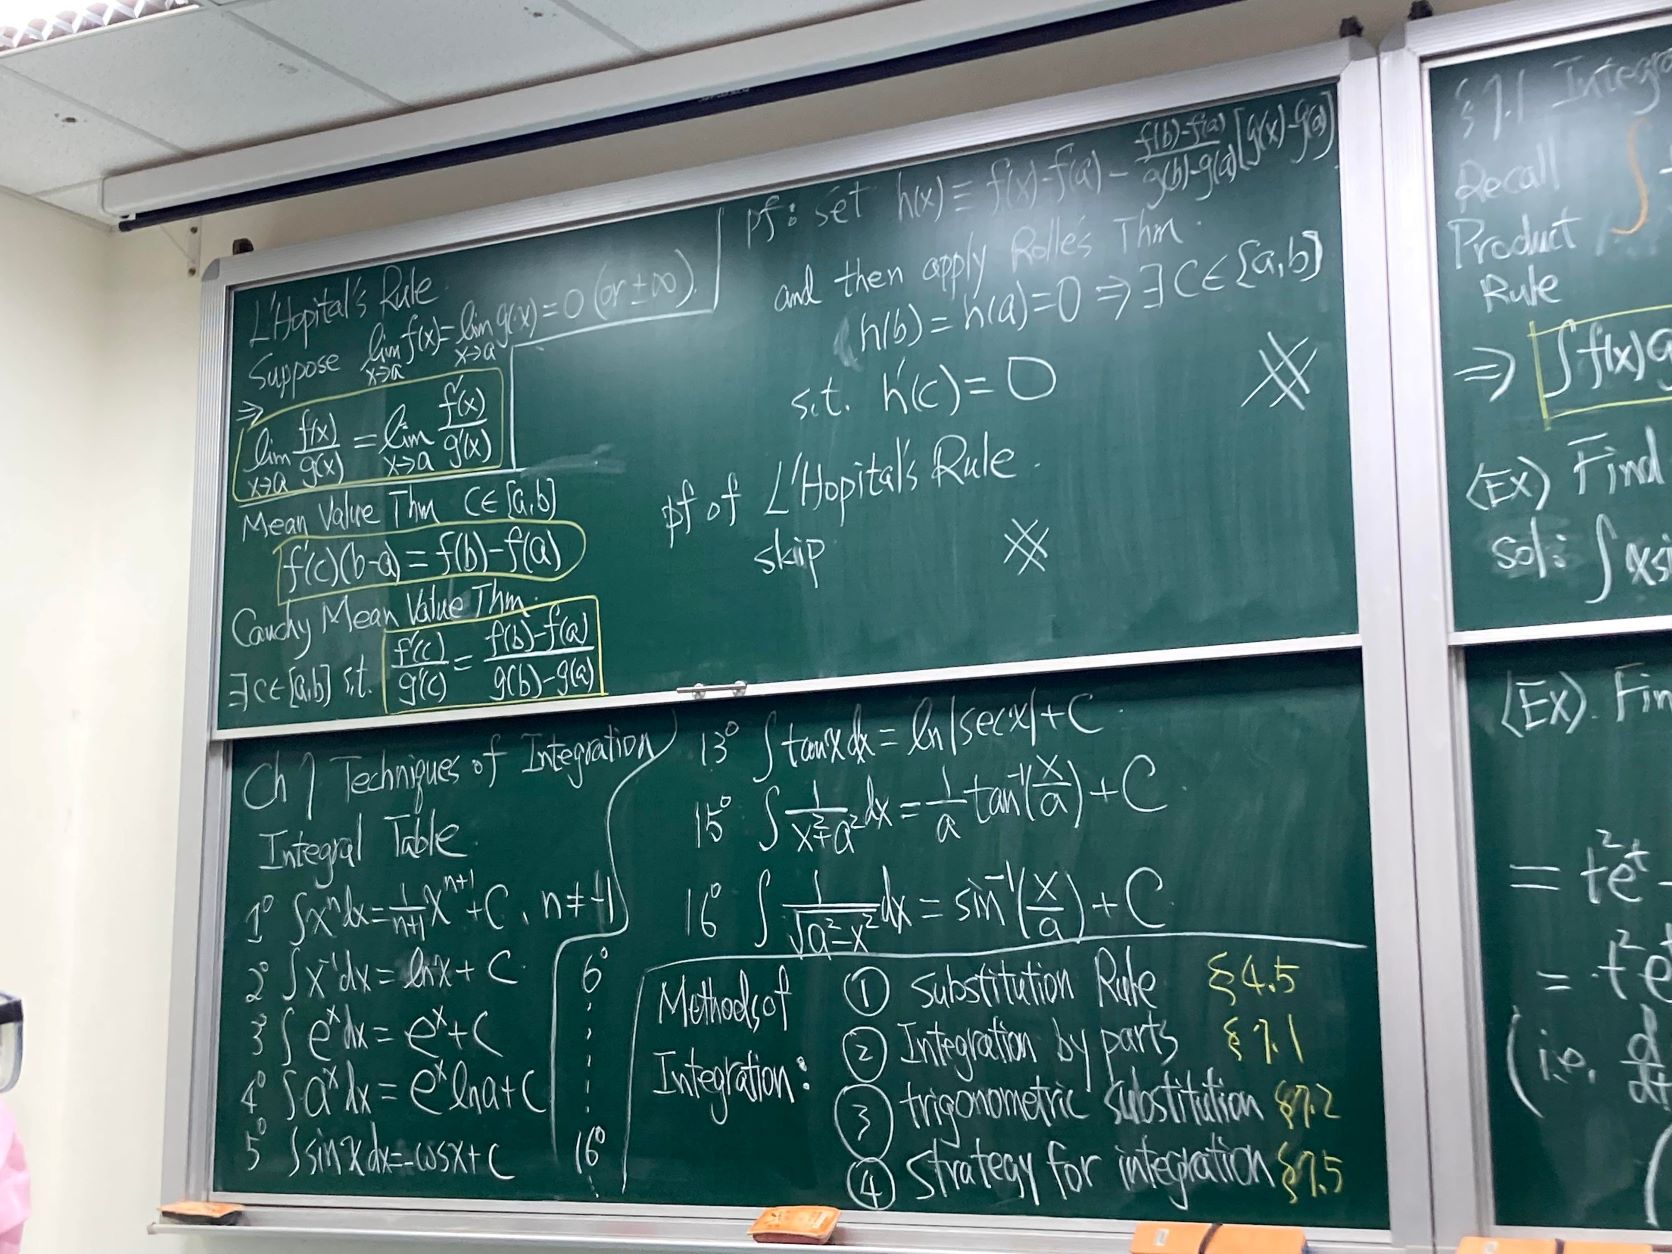 L'Hopital's Rule
Suppose lim x→a f(x) = lim x→a g(x) = 0 (or ±∞).
⇒
lim x→a f(x)/g(x) = lim x→a f'(x)/g'(x)
Mean Value Thm C∈[a,b]
f'(c)(b-a) = f(b)-f(a)
Cauchy Mean Value Thm.
∃ c∈[a,b] s.t. f'(c)/g'(c) = (f(b)-f(a))/(g(b)-g(a))
pf: set h(x) ≡ f(x)-f(a) - (f(b)-f(a))/(g(b)-g(a)) [g(x)-g(a)]
and then apply Rolle's Thm.
h(b) = h(a) = 0 ⇒ ∃ C∈[a,b]
s.t. h'(c) = 0
pf of L'Hopital's Rule.
skip
Ch 7 Techniques of Integration
Integral Table
1° ∫xⁿdx = 1/(n+1) xⁿ⁺¹ + C, n≠-1
2° ∫x⁻¹dx = lnx + C
3° ∫eˣdx = eˣ + C
4° ∫aˣdx = eˣ lna + C
5° ∫sinx dx = -cosx + C
6°
16°
13° ∫tanx dx = ln|secx| + C
15° ∫1/(x²+a²) dx = 1/a tan⁻¹(x/a) + C
16° ∫1/√(a²-x²) dx = sin⁻¹(x/a) + C
Methods of
Integration:
① Substitution Rule §4.5
② Integration by parts §7.1
③ trigonometric substitution §7.2
④ Strategy for integration §7.5
§7.1 Integra
Recall ∫
Product
Rule
⇒ ∫f(x)g
(Ex) Find
sol: ∫xsi
(Ex). Fin
= t²eᵗ -
= t²e
(i.e. d/dt